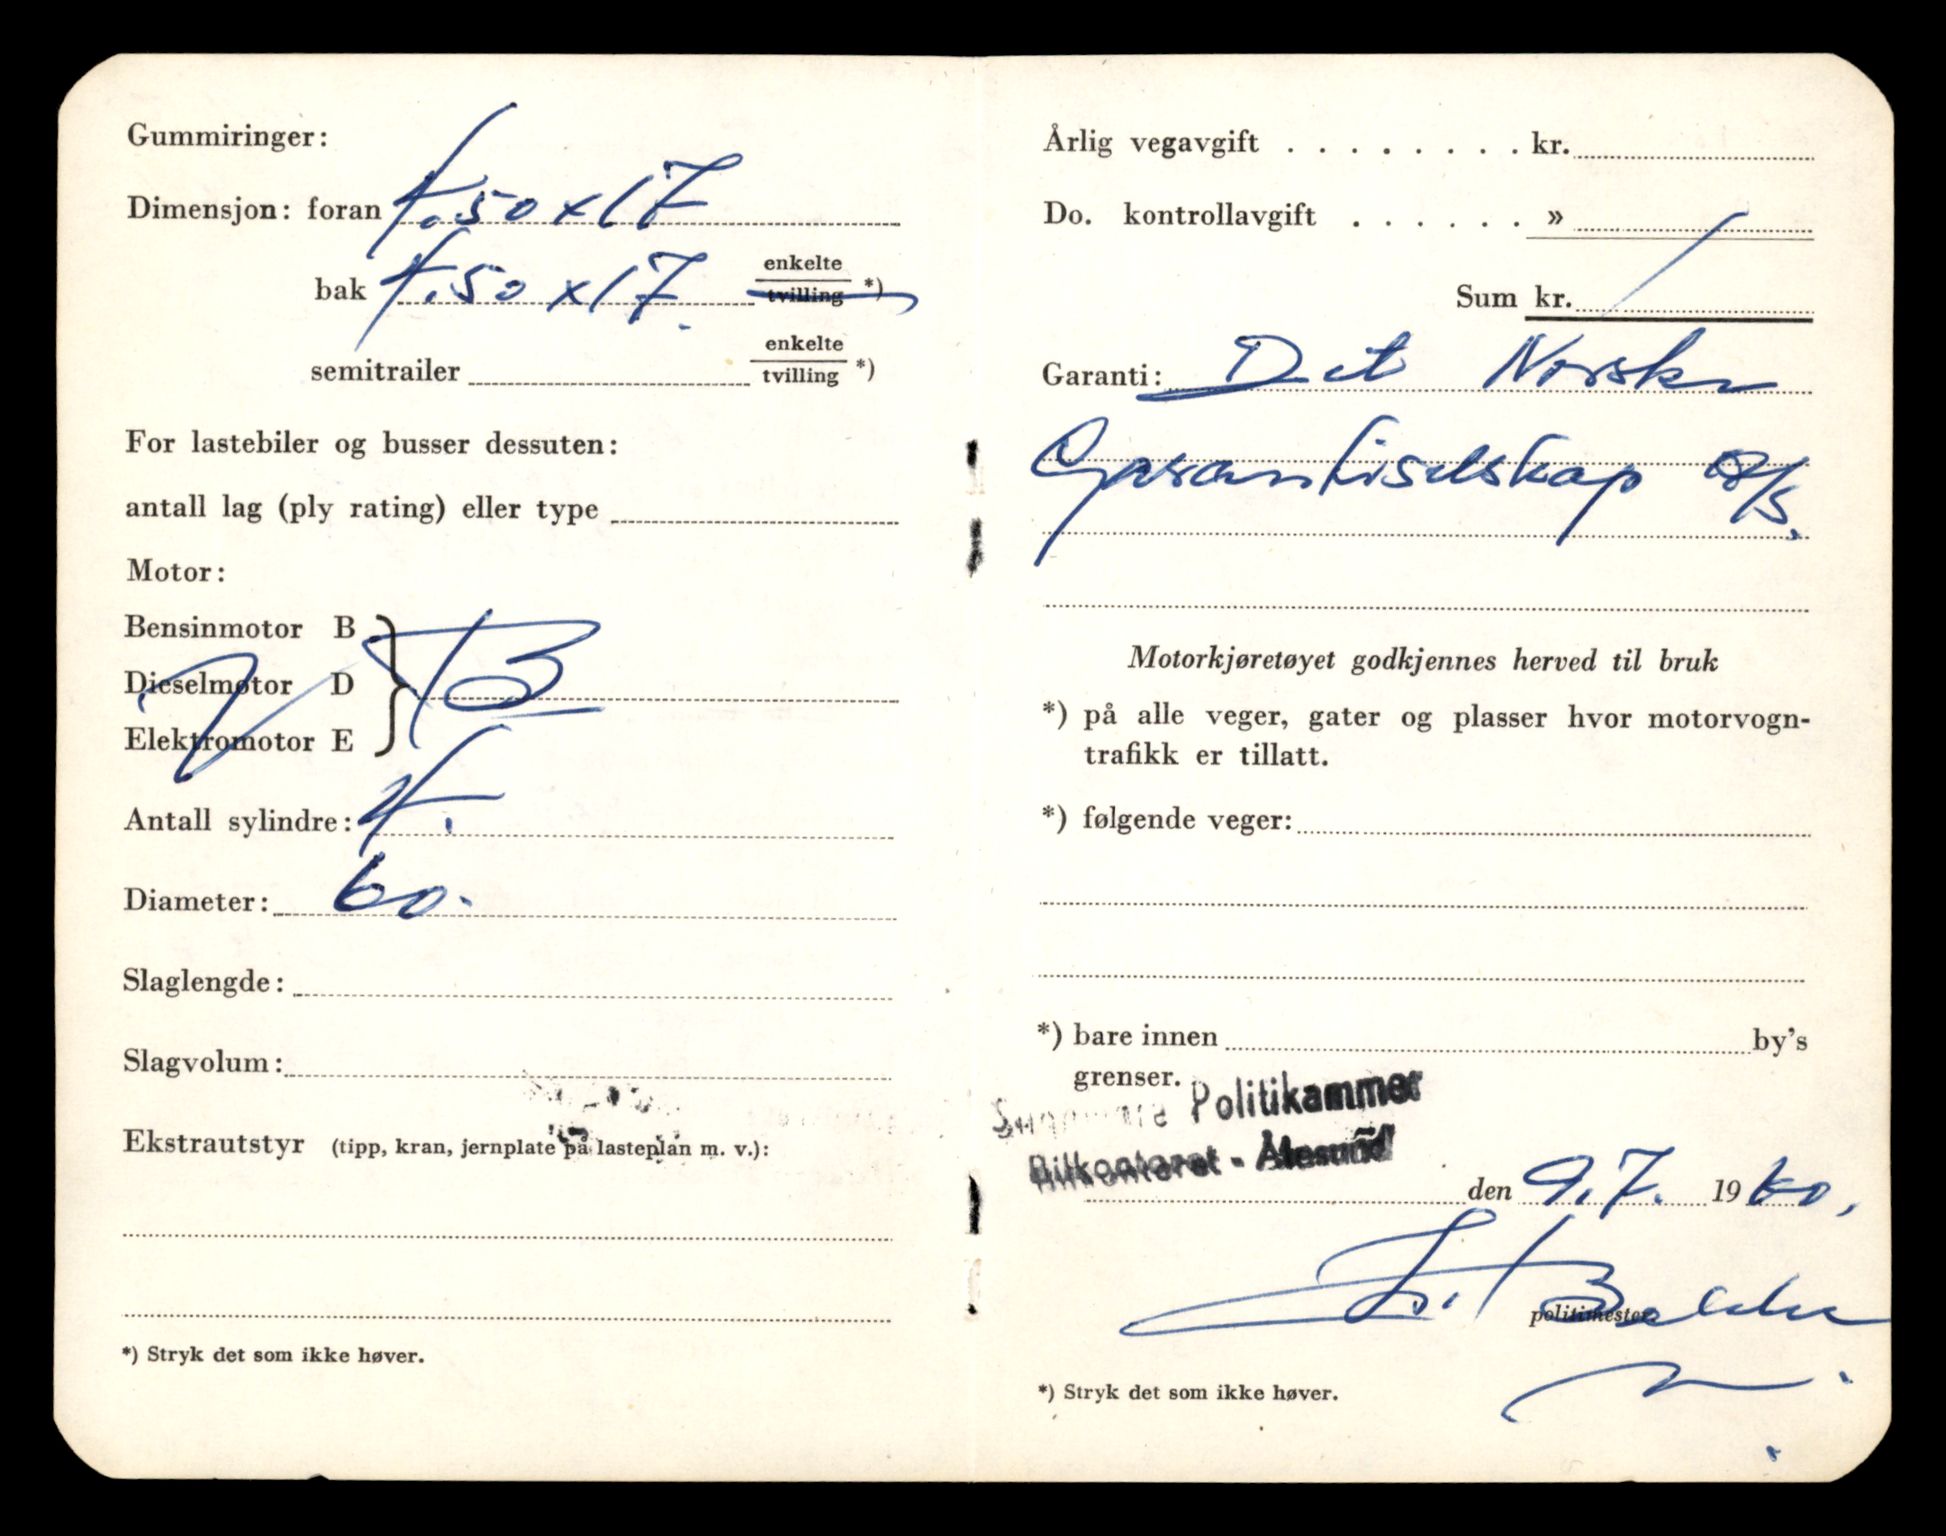 Gummiringer:
Dimensjon: foran 4.50 x 17
bak 4.50 x 17. enkelte
tvilling *)
semitrailer enkelte
tvilling *)
For lastebiler og busser dessuten:
antall lag (ply rating) eller type
Motor:
Bensinmotor B
Dieselmotor D B
Elektromotor E
Antall sylindre: 4.
Diameter: 60.
Slaglengde:
Slagvolum:
Ekstrautstyr (tipp, kran, jernplate på lasteplan m. v.):
*) Stryk det som ikke høver.
Årlig vegavgift . . . . . . . . kr.
Do. kontrollavgift . . . . . . »
Sum kr.
Garanti: Det Norske
Garantiselskap a/s.
Motorkjøretøyet godkjennes herved til bruk
*) på alle veger, gater og plasser hvor motorvogn-
trafikk er tillatt.
*) følgende veger:
*) bare innen by's
grenser.
Politikammer
Bilkontoret - Ålesund
den 9.7. 1960.
politimester
*) Stryk det som ikke høver.